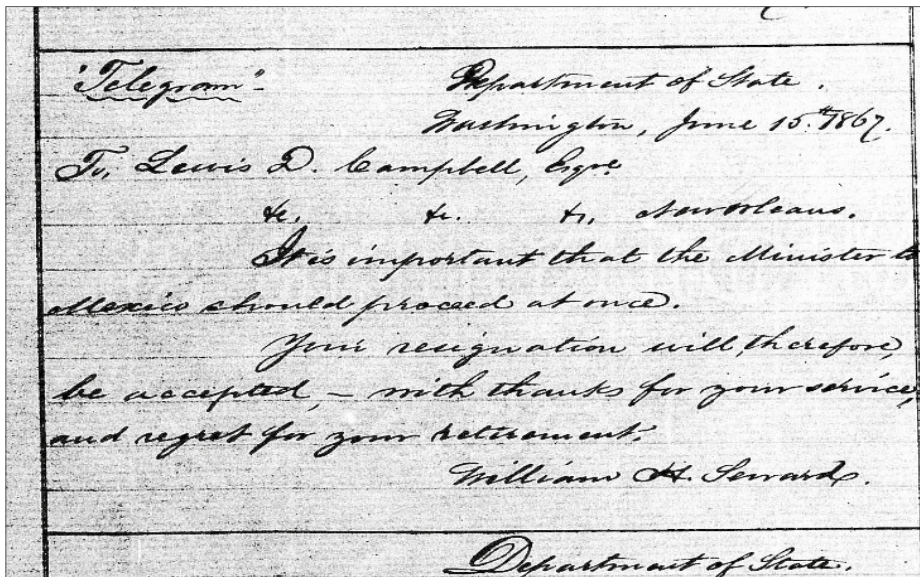 "Telegram"- Department of State.
Washington, June 15.th 1867.
To, Lewis D. Campbell, Esqre
&c. &c. &c. New Orleans.
It is important that the Minister to
Mexico should proceed at once.
Your resignation will, therefore,
be accepted, - with thanks for your service,
and regret for your retirement.
William H. Seward.
Department of State.